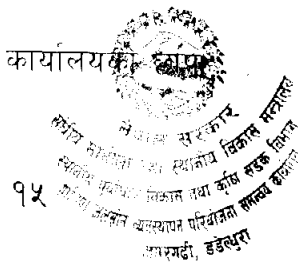 कार्यालयको छाप
नेपाल सरकार
संघीय मामिला तथा स्थानीय विकास मन्त्रालय
स्थानीय पूर्वाधार विकास तथा कृषि सडक विभाग
जलस्रोत व्यवस्थापन परियोजना समन्वय कार्यालय
अमरगढी, डडेल्धुरा
१५